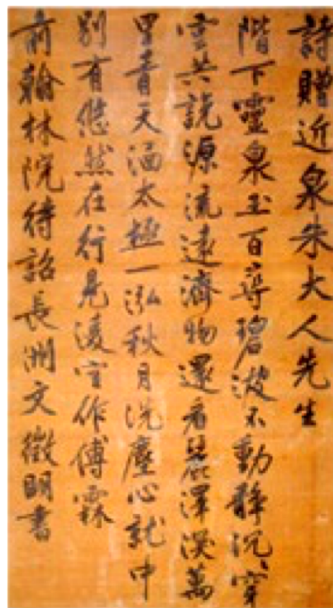 詩贈近泉朱大人先生
階下靈泉玉百尋碧波不動靜沉沉穿
雲共説源流遠濟物還看麗澤深萬
里青天涵太極一泓秋月洗塵心就中
別有悠然在行見凌空作傅霖
前翰林院待詔長洲文徵明書